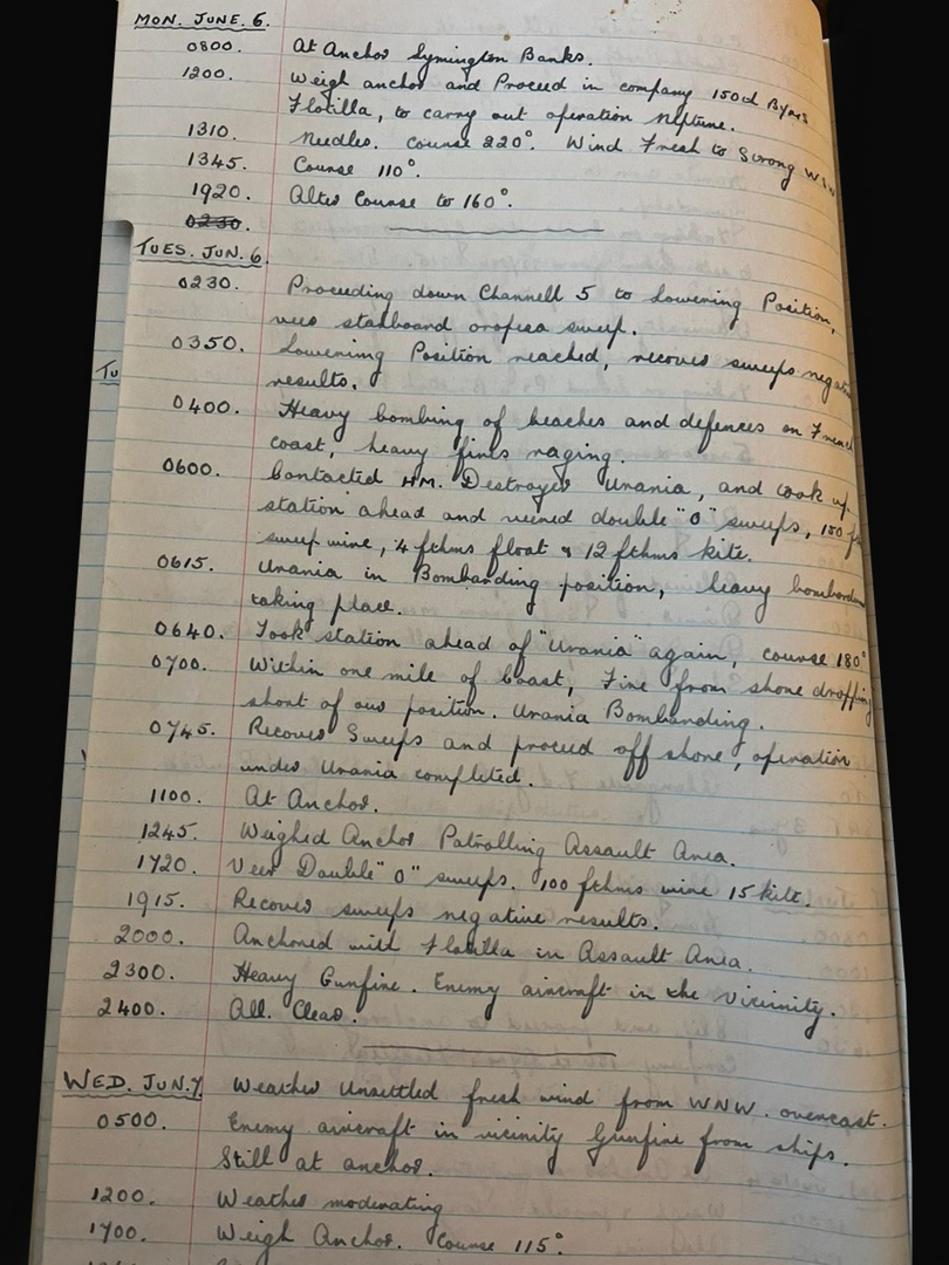 MON. JUNE. 6.
0800. At Anchor Symington Banks.
1200. Weigh anchor and Proceed in company 150th Byms
Flotilla, to carry out operation Neptune.
1310. Needles. Course 220°. Wind Fresh to Strong WNW
1345. Course 110°.
1920. Alter Course to 160°.
0230.
TUES. JUN. 6.
0230. Proceeding down Channell 5 to Lowering Position,
veer starboard oropesa sweep.
0350. Lowering Position reached, recover sweeps negative
Tu
results.
0400. Heavy bombing of beaches and defences on French
coast, heavy fires raging.
0600. Contacted HM. Destroyer Urania, and took up
station ahead and veered double "O" sweeps, 150
sweep wire, 4 fthms float & 12 fthms kite.
0615. Urania in Bombarding position, heavy
taking place.
0640. Took station ahead of "Urania" again, course 180°
0700. Within one mile of Coast, Fire from shore dropping
short of our position. Urania Bombarding.
0745. Recover Sweeps and proceed off shore, operation
under Urania completed.
1100. At Anchor.
1245. Weighed Anchor Patrolling Assault Area.
1720. Veer Double "O" sweeps. 100 fthms wire 15 kite.
1915. Recover sweeps negative results.
2000. Anchored with Flotilla in Assault Area.
2300. Heavy Gunfire. Enemy aircraft in the vicinity.
2400. All. Clear.
WED. JUN. 7. Weather Unsettled fresh wind from WNW. overcast.
0500. Enemy aircraft in vicinity Gunfire from ships.
Still at anchor.
1200. Weather moderating
1700. Weigh Anchor. Course 115°.